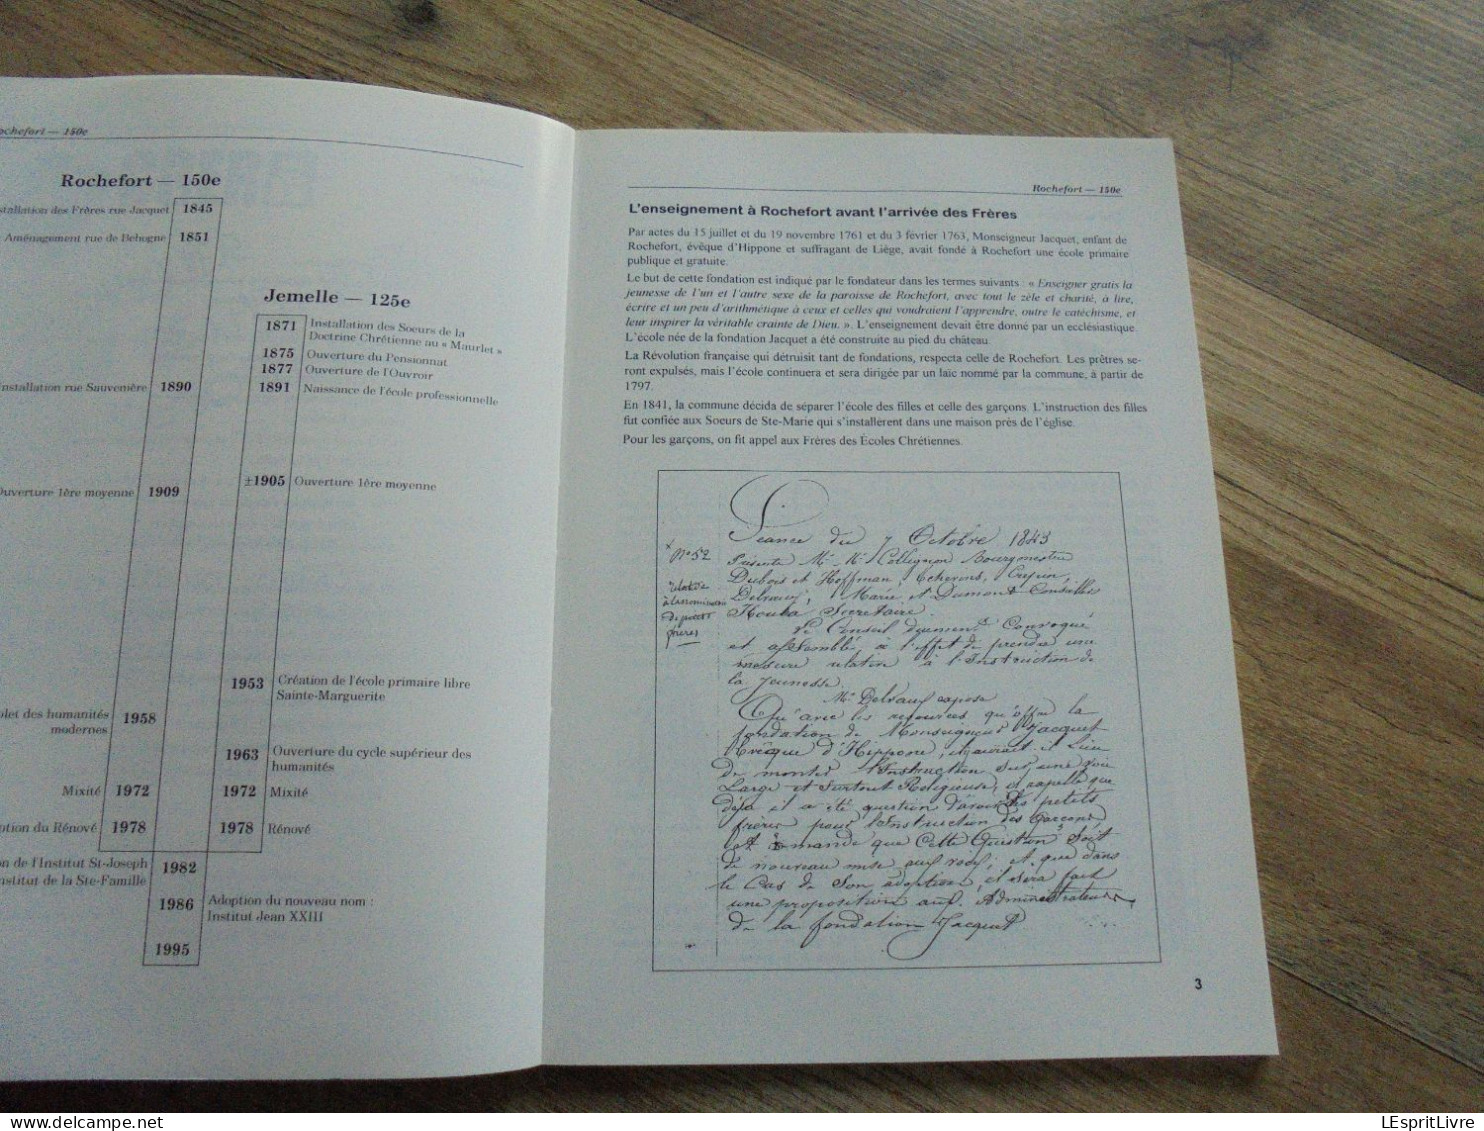 ochefort — 150e
Rochefort — 150e
stallation des Frères rue Jacquet 1845
Aménagement rue de Behogne 1851
nstallation rue Sauvenière 1890
Ouverture 1ère moyenne 1909
plet des humanités
modernes 1958
Mixité 1972
ption du Rénové 1978
on de l'Institut St-Joseph
nstitut de la Ste-Famille 1982
1986 Adoption du nouveau nom :
Institut Jean XXIII
1995
Jemelle — 125e
1871 Installation des Soeurs de la
Doctrine Chrétienne au « Maurlet »
1875 Ouverture du Pensionnat
1877 Ouverture de l'Ouvroir
1891 Naissance de l'école professionnelle
±1905 Ouverture 1ère moyenne
1953 Création de l'école primaire libre
Sainte-Marguerite
1963 Ouverture du cycle supérieur des
humanités
1972 Mixité
1978 Rénové
Rochefort — 150e
L'enseignement à Rochefort avant l'arrivée des Frères
Par actes du 15 juillet et du 19 novembre 1761 et du 3 février 1763, Monseigneur Jacquet, enfant de
Rochefort, évêque d'Hippone et suffragant de Liège, avait fondé à Rochefort une école primaire
publique et gratuite.
Le but de cette fondation est indiqué par le fondateur dans les termes suivants : « Enseigner gratis la
jeunesse de l'un et l'autre sexe de la paroisse de Rochefort, avec tout le zèle et charité, à lire,
écrire et un peu d'arithmétique à ceux et celles qui voudraient l'apprendre, outre le catéchisme, et
leur inspirer la véritable crainte de Dieu. ». L'enseignement devait être donné par un ecclésiastique.
L'école née de la fondation Jacquet a été construite au pied du château.
La Révolution française qui détruisit tant de fondations, respecta celle de Rochefort. Les prêtres se-
ront expulsés, mais l'école continuera et sera dirigée par un laïc nommé par la commune, à partir de
1797.
En 1841, la commune décida de séparer l'école des filles et celle des garçons. L'instruction des filles
fut confiée aux Soeurs de Ste-Marie qui s'installèrent dans une maison près de l'église.
Pour les garçons, on fit appel aux Frères des Écoles Chrétiennes.
Séance du 7 Octobre 1843
N° 52
Présents Mr Mr Collignon Bourgmestre
Dubois et Hoffman, Crépin,
Delvaux, Marie et Dumont Conseillers
Secrétaire.
Le Conseil dûement Convoqué
et assemblé à l'effet de prendre une
mesure relative à l'Instruction de
la Jeunesse.
Mr Delvaux expose
Qu'avec les ressources qu'offre la
fondation de Monseigneur Jacquet
Evêque d'Hippone, il y aurait lieu
de monter l'Instruction sur une voie
Large et surtout Religieuse, il rappelle que
déjà il a été question d'avoir des petits
frères pour l'Instruction des Garçons
Et demande que Cette Question soit
de nouveau mise aux voix, et que dans
le Cas de Son adoption, il sera fait
une proposition aux Administrateurs
de la fondation Jacquet
3
LEspritLivre